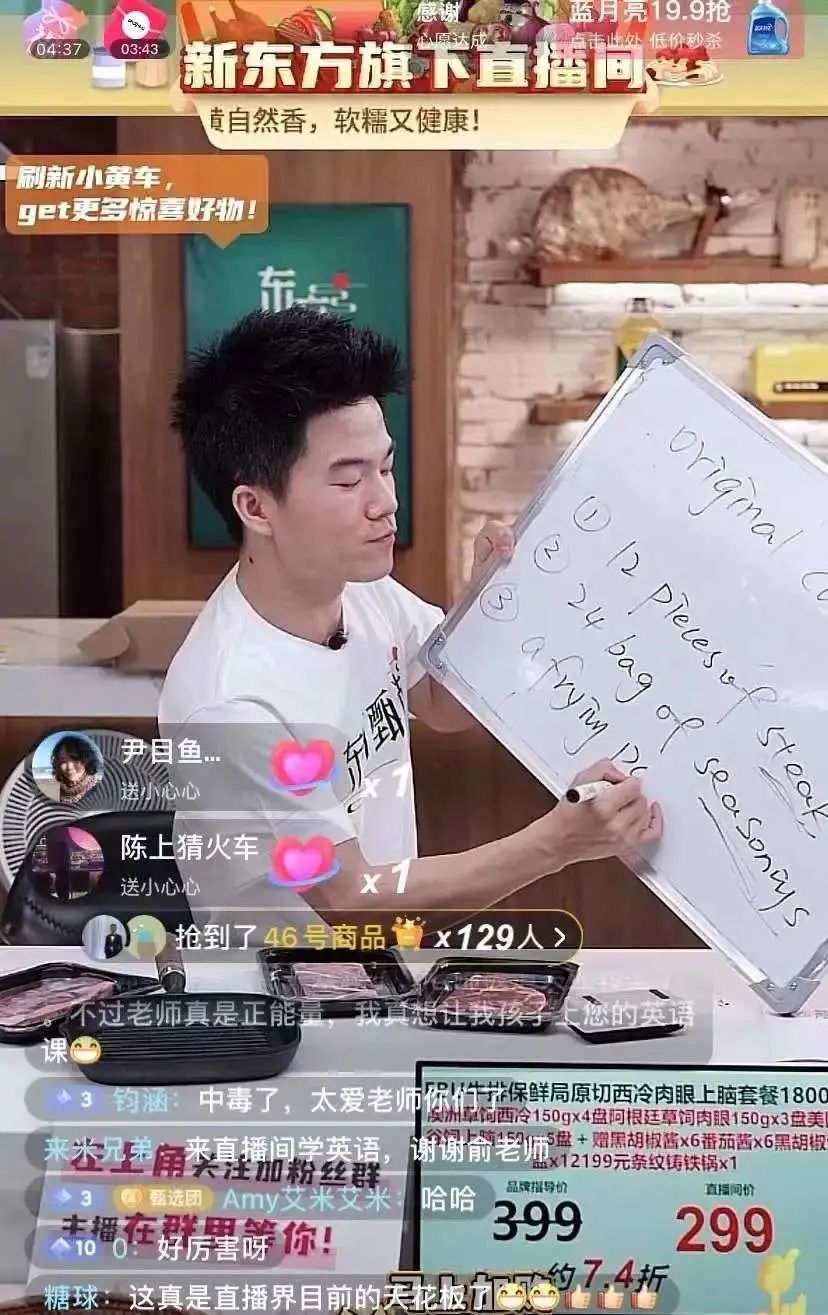 04:37
03:43
感谢
心愿达成
蓝月亮19.9抢
点击此处 低价秒杀
新东方旗下直播间
黄自然香，软糯又健康！
刷新小黄车，
get更多惊喜好物！
东方
original
① 12 pieces of steak
② 24 bag of seasonings
③ a frying pa
东方甄
尹目鱼...
送小心心
x 1
陈上猜火车
送小心心
x 1
抢到了 46号商品 x129人 >
。不过老师真是正能量，我真想让我孩子上您的英语
课
3 钧涵：中毒了，太爱老师你们了
来米兄弟：来直播间学英语，谢谢俞老师
3 甄选团 Amy艾米艾米：哈哈
10 0：好厉害呀
糖球：这真是直播界目前的天花板了
左上角关注加粉丝群
主播在群里等你！
牛排保鲜局原切西冷肉眼上脑套餐1800
澳洲草饲西冷150gx4盘阿根廷草饲肉眼150gx3盘美国
谷饲上脑150gx5盘 + 赠黑胡椒酱x6番茄酱x6黑胡椒
盐x12199元条纹铸铁锅x1
品牌指导价
399
直播间价
299
约7.4折